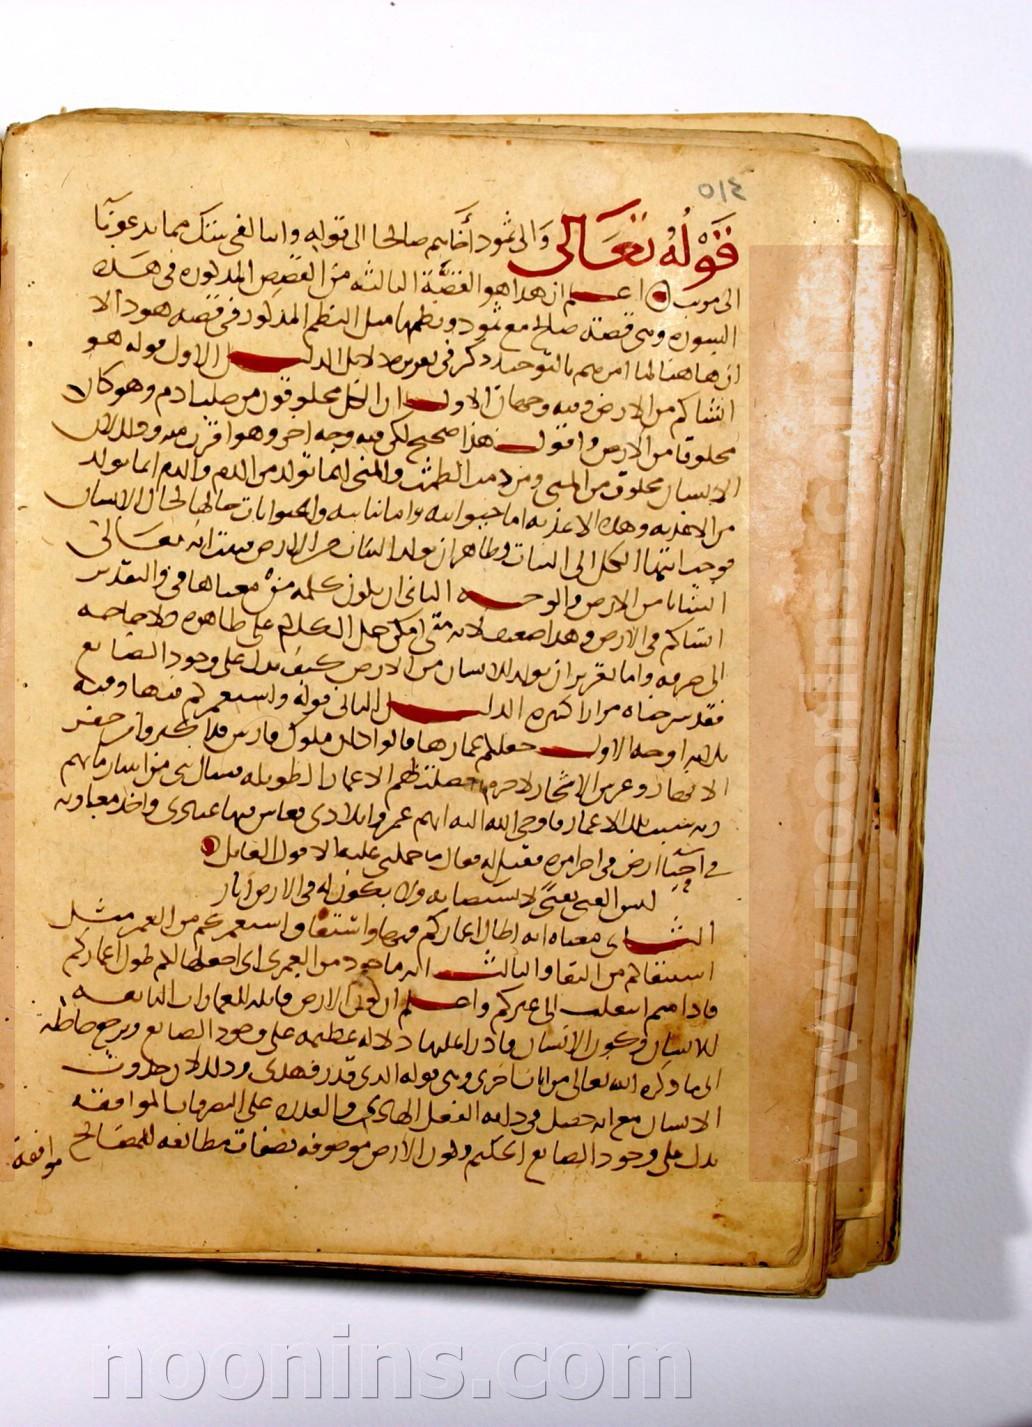 ٤١٥
قَوْلُهُ تَعَالَى وَالى ثمود أخاهم صالحا الى قوله واننا لفى شك مما تدعونا
الى مريب اعلم ان هذا هو القصّة الثالثه من القصص المذكوره فى هذه
السوره وهى قصة صالح مع ثمود ونظمها مثل النظم المذكور فى قصه هود الا
ان هاهنا لما امرهم بالتوحيد ذكر فى تقريره دلائل الدليل الاول قوله هو
انشاكم من الارض وفيه وجهان الاول ان الكل مخلوقون من صلب ادم وهو كان
مخلوقا من الارض واقول هذا صحيح لكن فيه وجه اخر وهو اقرب منه وذلك لان
الانسان مخلوق من المنى ومن دم الطمث والمنى انما تولد من الدم والدم انما تولد
من الاغذيه وهذه الاغذيه اما حيوانيه واما نباتيه والحيوانات حالها كحال الانسان
فوجب انتها الكل الى النبات وظاهر ان تولد النبات من الارض فثبت انه تعالى
انشانا من الارض والوجه الثانى ان يكون كلمه من معناها فى والتقدير
انشاكم فى الارض وهذا ضعيف لانه متى امكن حمل الكلام على ظاهره فلا حاجه
الى صرفه واما تقرير ان تولد الانسان من الارض كيف يدل على وجود الصانع
فقد شرحناه مرارا كثيره الدليل الثانى قوله واستعمركم فيها وفيه
ثلاثه اوجه الاول جعلكم عمارها قالوا كان ملوك فارس قد اكثروا من حفر
الانهار وغرس الاشجار لا جرم حصلت لهم الاعمار الطويله فسال نبى من انبيا زمانهم
ربه سبب تلك الاعمار فاوحى الله اليه انهم عمروا بلادى فعاش فيها عبادى واخذ معاويه
فى احيا ارض فى اخر امره فقيل له فقال ما حملنى عليه الا قول القائل
ليس الفتى بفتى لا يستضا به ولا يكون له فى الارض اثار
الثانى معناه انه اطال اعماركم فيها واشتقاق استعمركم من العمر مثل
استبقاكم من البقا والثالث انه ماخوذ من العمرى اى جعلها لكم طول اعماركم
فاذا متم انتقلت الى غيركم واعلم ان كون الارض قابله للعمارات النافعه
للانسان وكون الانسان قادرا عليها دلاله عظيمه على وجود الصانع ويرجع حاصله
الى ما ذكره الله تعالى من ايات اخرى وهى قوله الذى قدر فهدى وذلك لان حدوث
الانسان مع انه حصل فى ذاته العقل الهادى والقدره على التصرفات الموافقه
يدل على وجود الصانع الحكيم وكون الارض موصوفه بصفات مطابقه للمصالح
موافقه
www.noonins.com
noonins.com